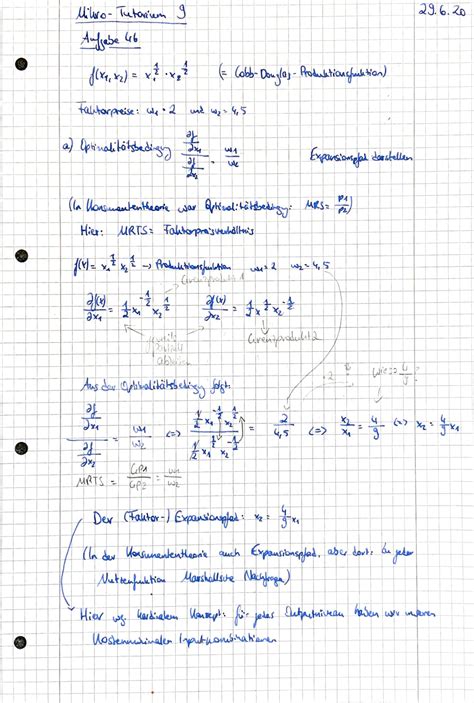 Mikro-Tutorium 9 29.6.20
Aufgabe 46
f(x₁,x₂) = x₁^½ · x₂^½ (= Cobb-Douglas-Produktionsfunktion)
Faktorpreise: w₁ = 2 und w₂ = 4,5
a) Optimalitätsbedingg (∂f/∂x₁)/(∂f/∂x₂) = w₁/w₂ Expansionspfad darstellen
(In Konsumententheorie war Optimalitätsbedingg: MRS = p₁/p₂)
Hier: MRTS = Faktorpreisverhältnis
f(x) = x₁^½ x₂^½ → Produktionsfunktion w₁=2 w₂=4,5
Grenzprodukt 1
∂f(x)/∂x₁ = ½ x₁^-½ x₂^½ ∂f(x)/∂x₂ = ½ x₁^½ x₂^-½
Grenzprodukt 2
Wieso 4/9?
Aus der Optimalitätsbedingg folgt:
(∂f/∂x₁)/(∂f/∂x₂) = w₁/w₂ <=> (½ x₁^-½ x₂^½)/(½ x₁^½ x₂^-½) = 2/4,5 <=> x₂/x₁ = 4/9 <=> x₂ = 4/9 x₁
MRTS = GP1/GP2 = w₁/w₂
Der (Faktor-) Expansionspfad: x₂ = 4/9 x₁
(In der Konsumententheorie auch Expansionspfad, aber dort: zu jeder
Nutzenfunktion Marshallsche Nachfragen)
Hier wg. kardinalem Konzept: für jedes Outputniveau haben wir unseren
kostenminimalen Inputkombinationen